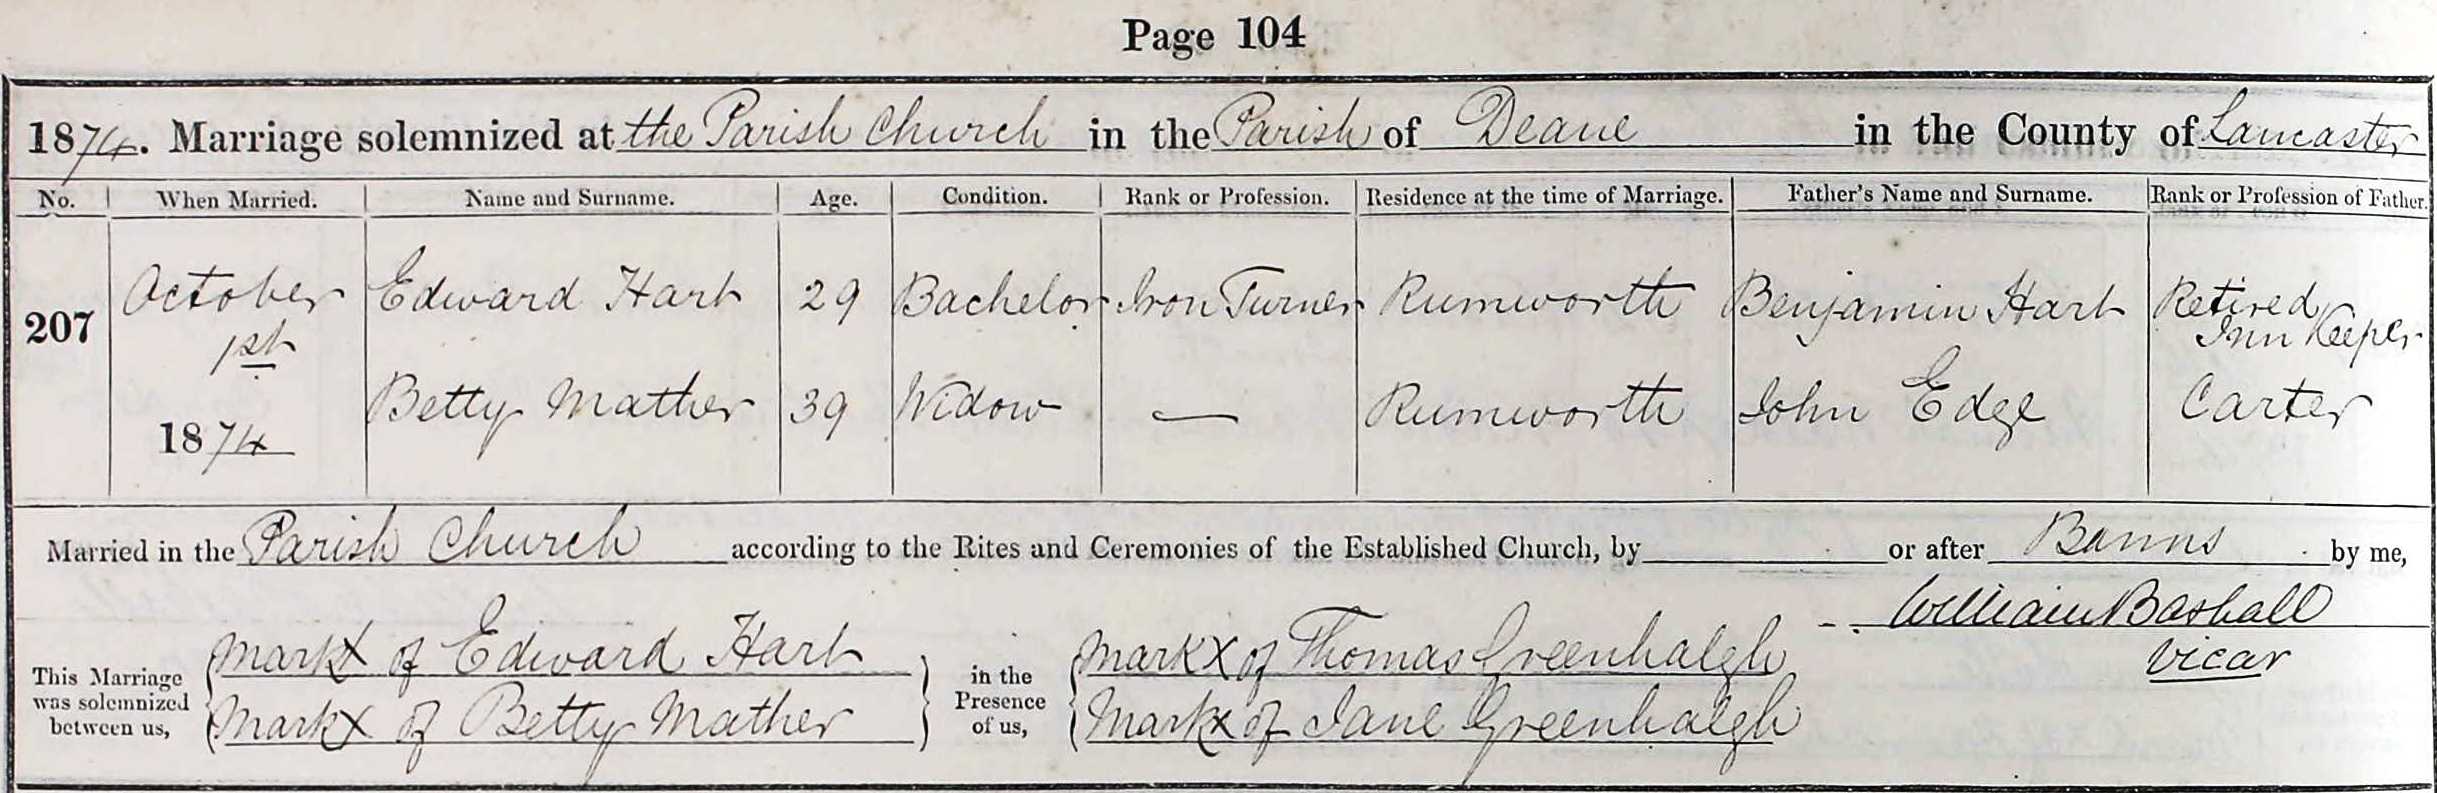 Page 104
1874. Marriage solemnized at the Parish Church in the Parish of Deane in the County of Lancaster
No. When Married. Name and Surname. Age. Condition. Rank or Profession. Residence at the time of Marriage. Father's Name and Surname. Rank or Profession of Father.
207 October 1st 1874 Edward Hart 29 Bachelor Iron Turner Rumworth Benjamin Hart Retired Inn Keeper
Betty Mather 39 Widow — Rumworth John Edge Carter
Married in the Parish Church according to the Rites and Ceremonies of the Established Church, by or after Banns by me,
William Bashall
Vicar
This Marriage was solemnized between us, Mark X of Edward Hart
Mark X of Betty Mather
in the Presence of us, Mark X of Thomas Greenhalgh
Mark X of Jane Greenhalgh